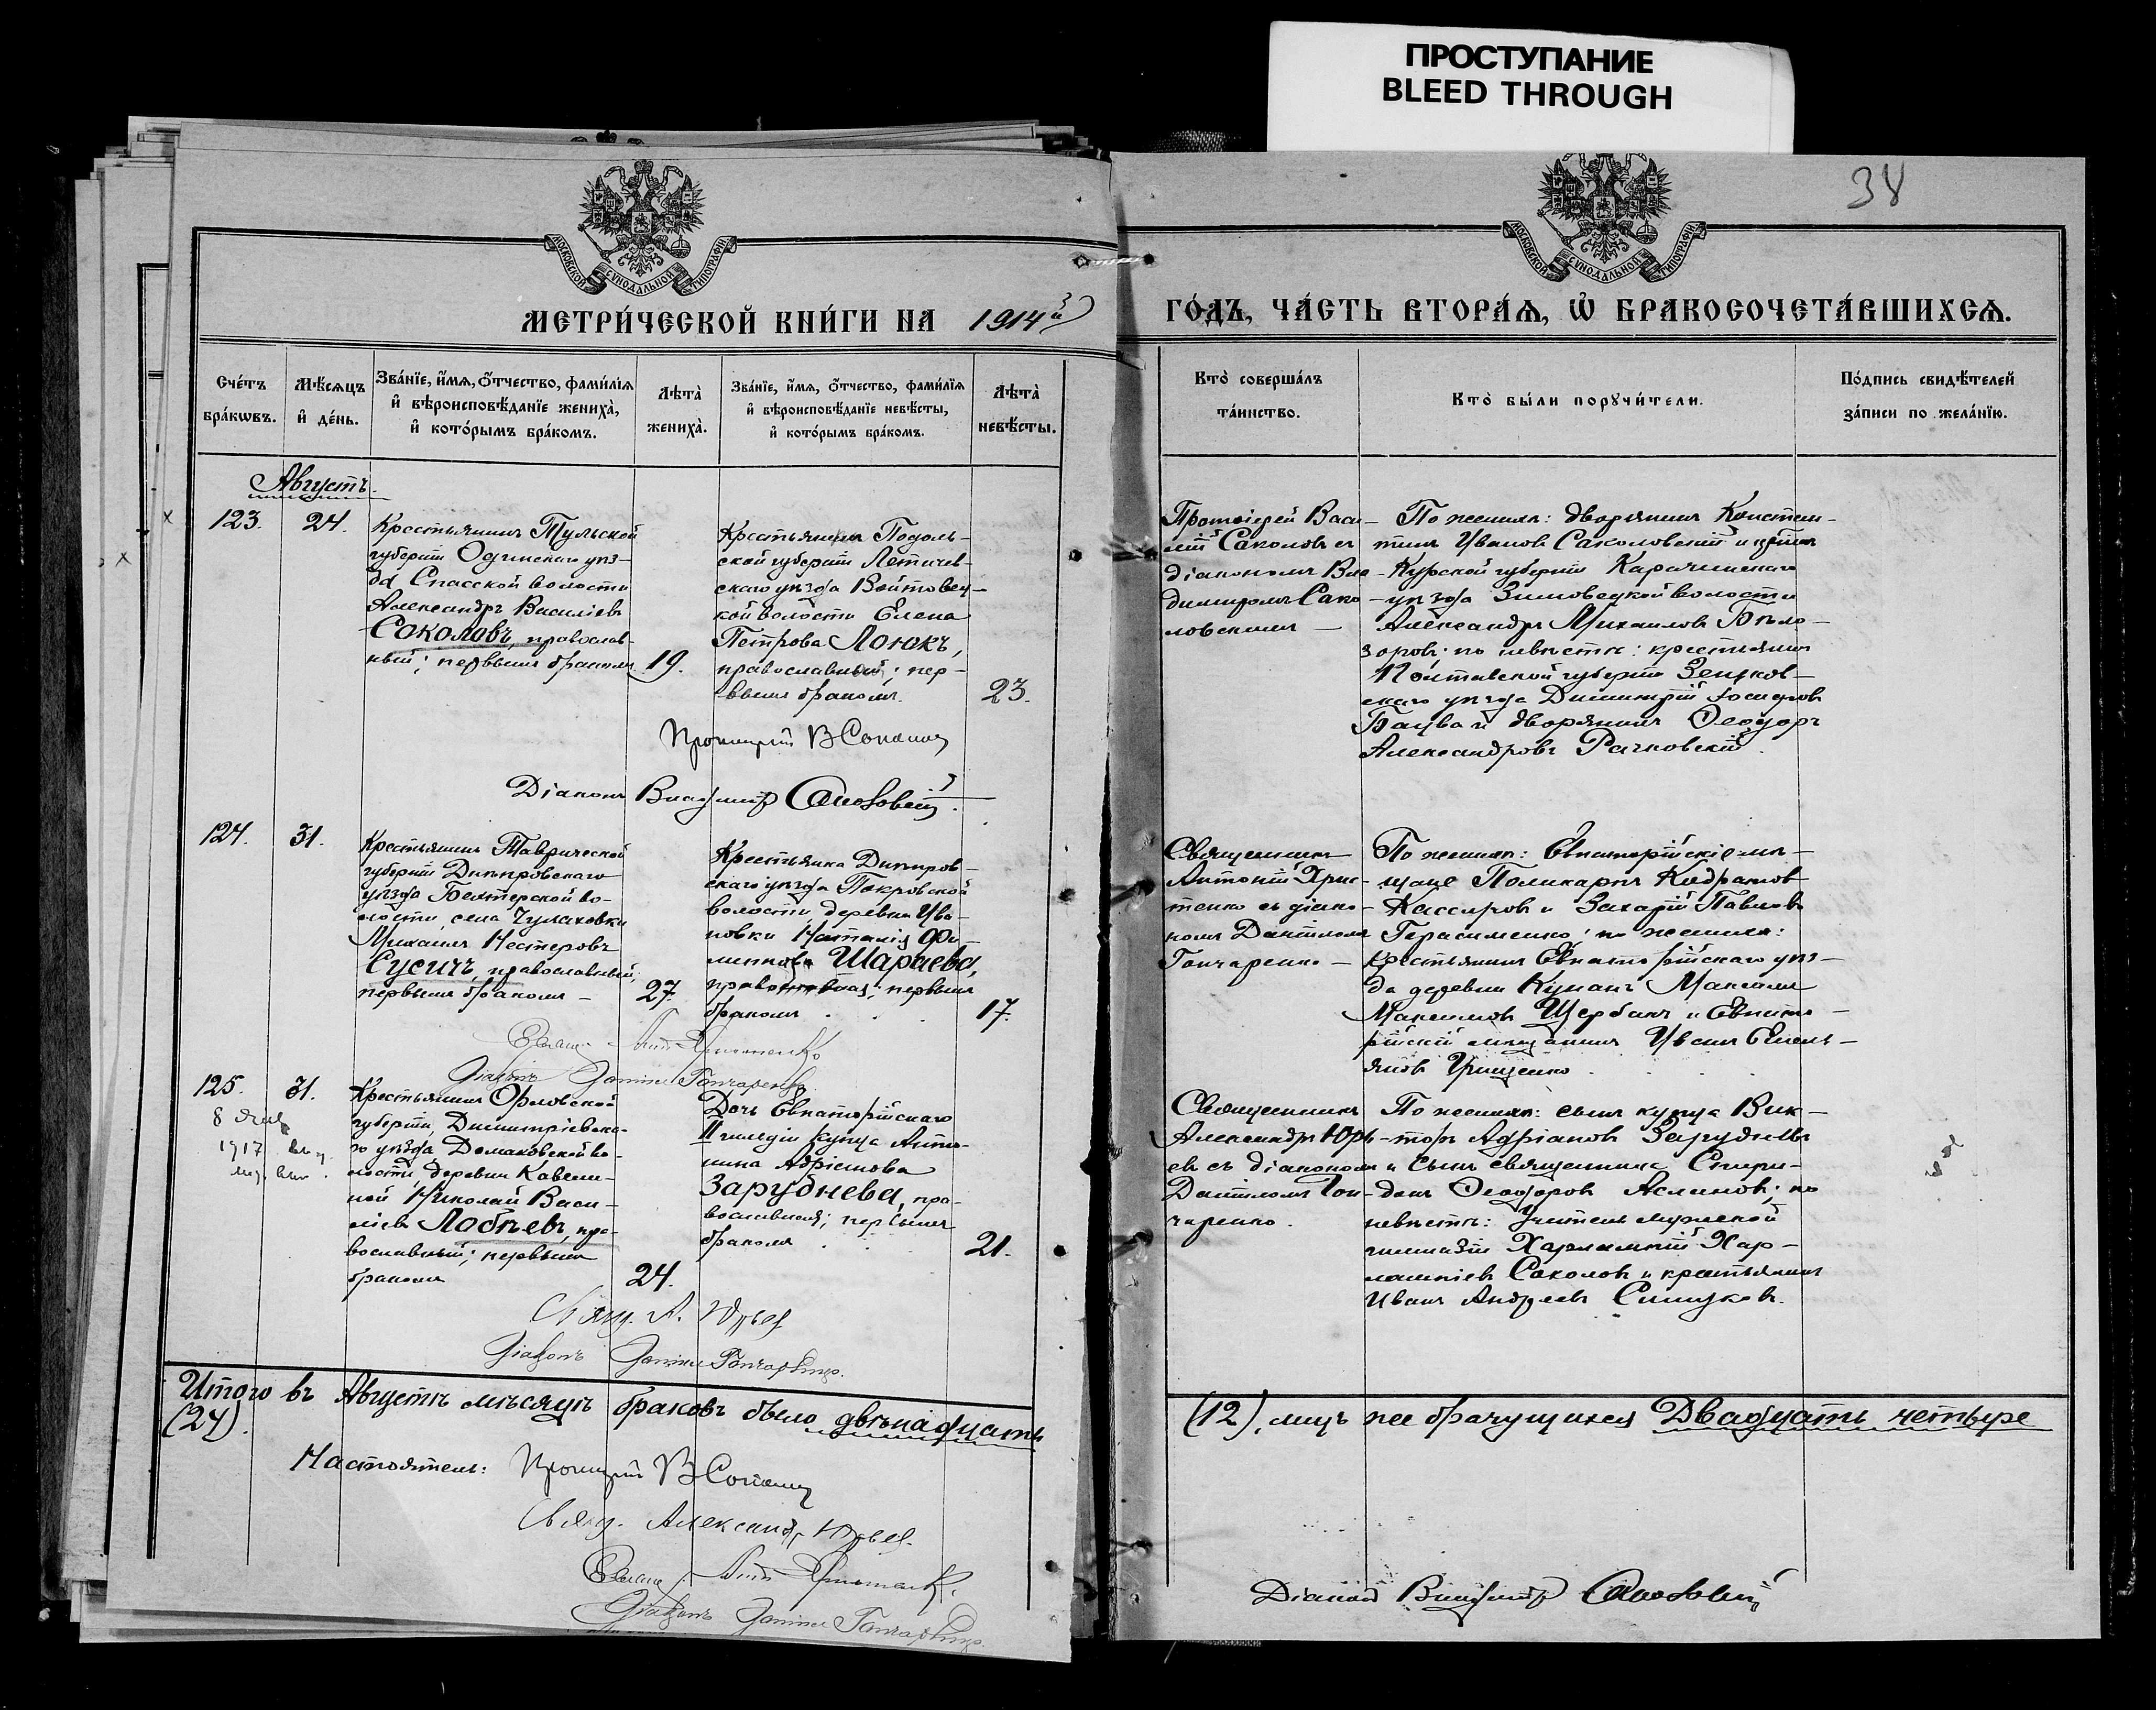 ПРОСТУПАНИЕ
BLEED THROUGH
38
МОСКОВСКОЙ СѴНОДАЛЬНОЙ ТИПОГРАФІИ
МОСКОВСКОЙ СѴНОДАЛЬНОЙ ТИПОГРАФІИ
МЕТРИ́ЧЕСКОЙ КНИ́ГИ НА 1914й
ГО́ДЪ, ЧА́СТЬ ВТОРА́Ѧ, Ѽ БРАКОСОЧЕТА́ВШИХСѦ.
Сче́тъ
бра́кѡвъ.
Мѣ́сѧцъ
и҆ де́нь.
Зва́нїе, и҆́мѧ, ѻ҆́тчество, фами́лїѧ
и҆ вѣроисповѣ́данїе жениха̀,
и҆ кото́рымъ бра́комъ.
Лѣта̀
жениха̀.
Зва́нїе, и҆́мѧ, ѻ҆́тчество, фами́лїѧ
и҆ вѣроисповѣ́данїе невѣ́сты,
и҆ кото́рымъ бра́комъ.
Лѣта̀
невѣ́сты.
Кто̀ соверша́лъ
та́инство.
Кто̀ бы́ли порꙋчи́тели.
По́дпись свидѣ́телей
за́писи по жела́нїю.
Августъ.
123.
24.
Крестьянинъ Тульской
губерніи
Спасской волости
Александръ Василіевъ
Соколовъ, православ-
ный; первымъ бракомъ
19.
Подоль-
ской губерніи Летичев-
скаго уѣзда Войтовец-
кой волости Елена
Петрова Лоюкъ,
пер-
вымъ бракомъ.
23.
Протоіерей Васи-
лій Соколовъ съ
діакономъ Вла-
димиромъ Сако-
ловскимъ
По женихѣ: дворянинъ Констан-
тинъ Ивановъ Саколовскій и
Курской губерніи
уѣзда волости
Александръ Михаиловъ Бѣло-
зоровъ; по невѣстѣ: крестьянинъ
Полтавской губерніи Зеньков-
скаго уѣзда Димитрій
и дворянинъ Ѳеодоръ
Александровъ Рачковскій.
Протоіерей В Соколовъ
Діаконъ Владиміръ
124.
31.
Крестьянинъ Таврической
губерніи Днѣпровскаго
уѣзда во-
лости, села Чулаковки
Михаилъ Нестеровъ
Сусичъ, православный;
первымъ бракомъ –
27.
Крестьянка Днѣпров-
скаго уѣзда Покровской
волости, деревни Ива-
новки Наталія Фи-
липпова Шараева,
православная; первымъ
бракомъ
17.
Священникъ
Антоній Хрис-
тенко съ діако-
номъ Даніиломъ
Гончаренко –
По женихѣ: Евпаторійскіе мѣ-
щане Поликарпъ
и Захарій Павловъ
Герасименко; по женихѣ:
крестьянинъ Евпаторійскаго уѣз-
да деревни Максимъ
Максимовъ Щербакъ и Евпато-
рійскій мѣщанинъ Иванъ Емель-
яновъ Грищенко
Діаконъ Даніилъ Гончаренко.
125.
31.
8
1917
Крестьянинъ Орловской
губерніи, Димитріевска-
го уѣзда, Домаховской во-
лости, деревни
Николай Васи-
ліевъ Лобѣевъ, пра-
вославный; первымъ
бракомъ
24.
Дочь Евпаторійскаго
II гильдіи купца Анто-
нина Адріанова
Заруднева, пра-
вославная; первымъ
бракомъ
21.
Священникъ
Александръ Юрь-
евъ съ діакономъ
Даніиломъ Гон-
чаренко.
По женихѣ: сынъ купца Вик-
торъ Адріановъ Зарудневъ
и сынъ священника Спири-
донъ Ѳеодоровъ ; по
невѣстѣ: Учитель мужской
гимназіи Харлампій Хар-
лампіевъ Соколовъ и крестьянинъ
Иванъ Андреевъ
Свящ. А. Юрьевъ
Діаконъ Даніилъ Гончаренко.
Итого въ Августѣ мѣсяцѣ браковъ было двѣнадцать
(12), лицъ же брачущихся Двадцать четыре
(24).
Настоятель: Протоіерей В Соколовъ
Свящ. Александръ Юрьевъ.
Діаконъ Даніилъ Гончаренко.
Діаконъ Владиміръ